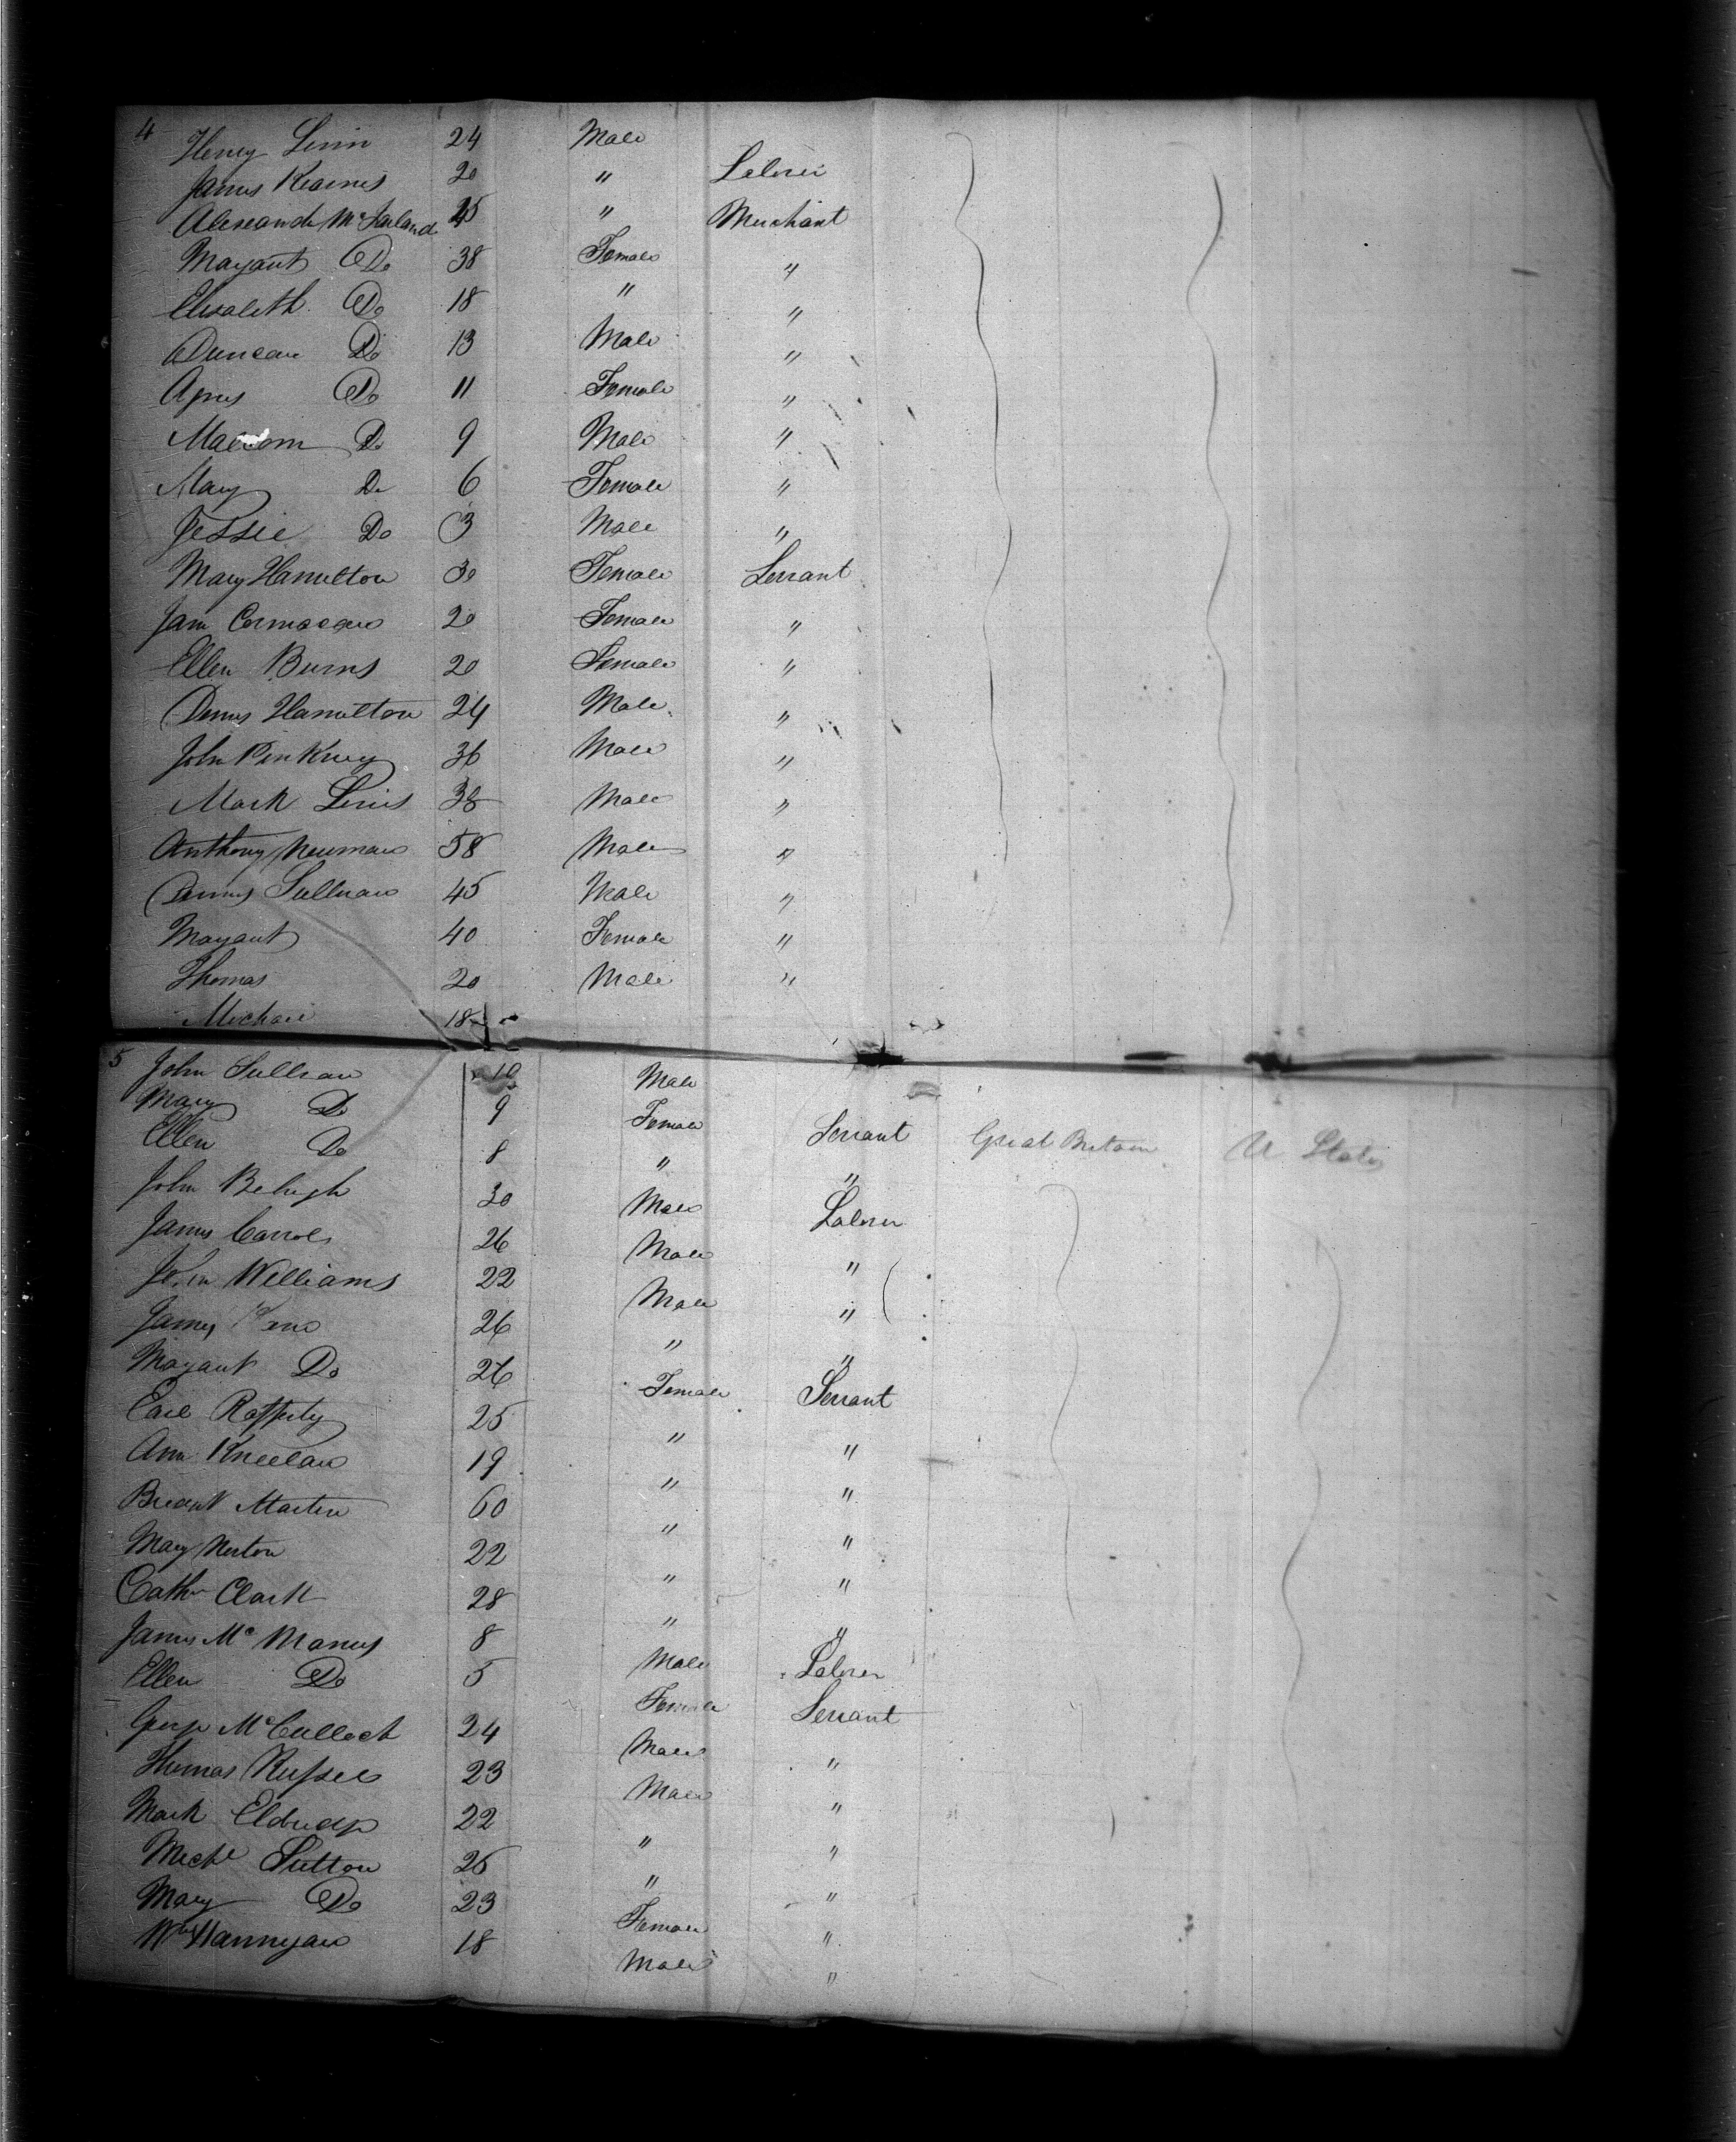 4
Henry Linin 24 Male
James Kearnes 20 " Laborer
Alexander McFarland 45 " Merchant
Margaret Do 38 Female "
Elisabeth Do 18 " "
Duncan Do 13 Male "
Agnes Do 11 Female "
Malcom Do 9 Male "
Mary Do 6 Female "
Jessie Do 3 Male "
Mary Hamilton 30 Female Servant
Jane 20 Female "
Ellen Burns 20 Female "
Dennis Hamilton 24 Male "
John Pinkney 36 Male "
Mark 38 Male "
Anthony Newman 58 Male "
Dennis Sullivan 45 Male "
Margaret 40 Female "
Thomas 20 Male "
Michael 18
5
John Sullivan 10 Male
Mary Do 9 Female Servant Great Britain U States
Ellen Do 8 " "
John 30 Male Laborer
James Carrol 26 Male "
John Williams 22 Male "
James 26 " "
Margaret Do 26 Female Servant
Rafferty 25 " "
Ann Kneelan 19 " "
Martin 60 " "
Mary Norton 22 " "
Cathn Clark 28 " "
James McManus 8 Male Laborer
Ellen Do 5 Female Servant
George McCulloch 24 Male "
Thomas Russel 23 Male "
Mark Eldridge 22 " "
Michl Sutton 25 " "
Mary Do 23 Female "
Wm Hannegan 18 Male "